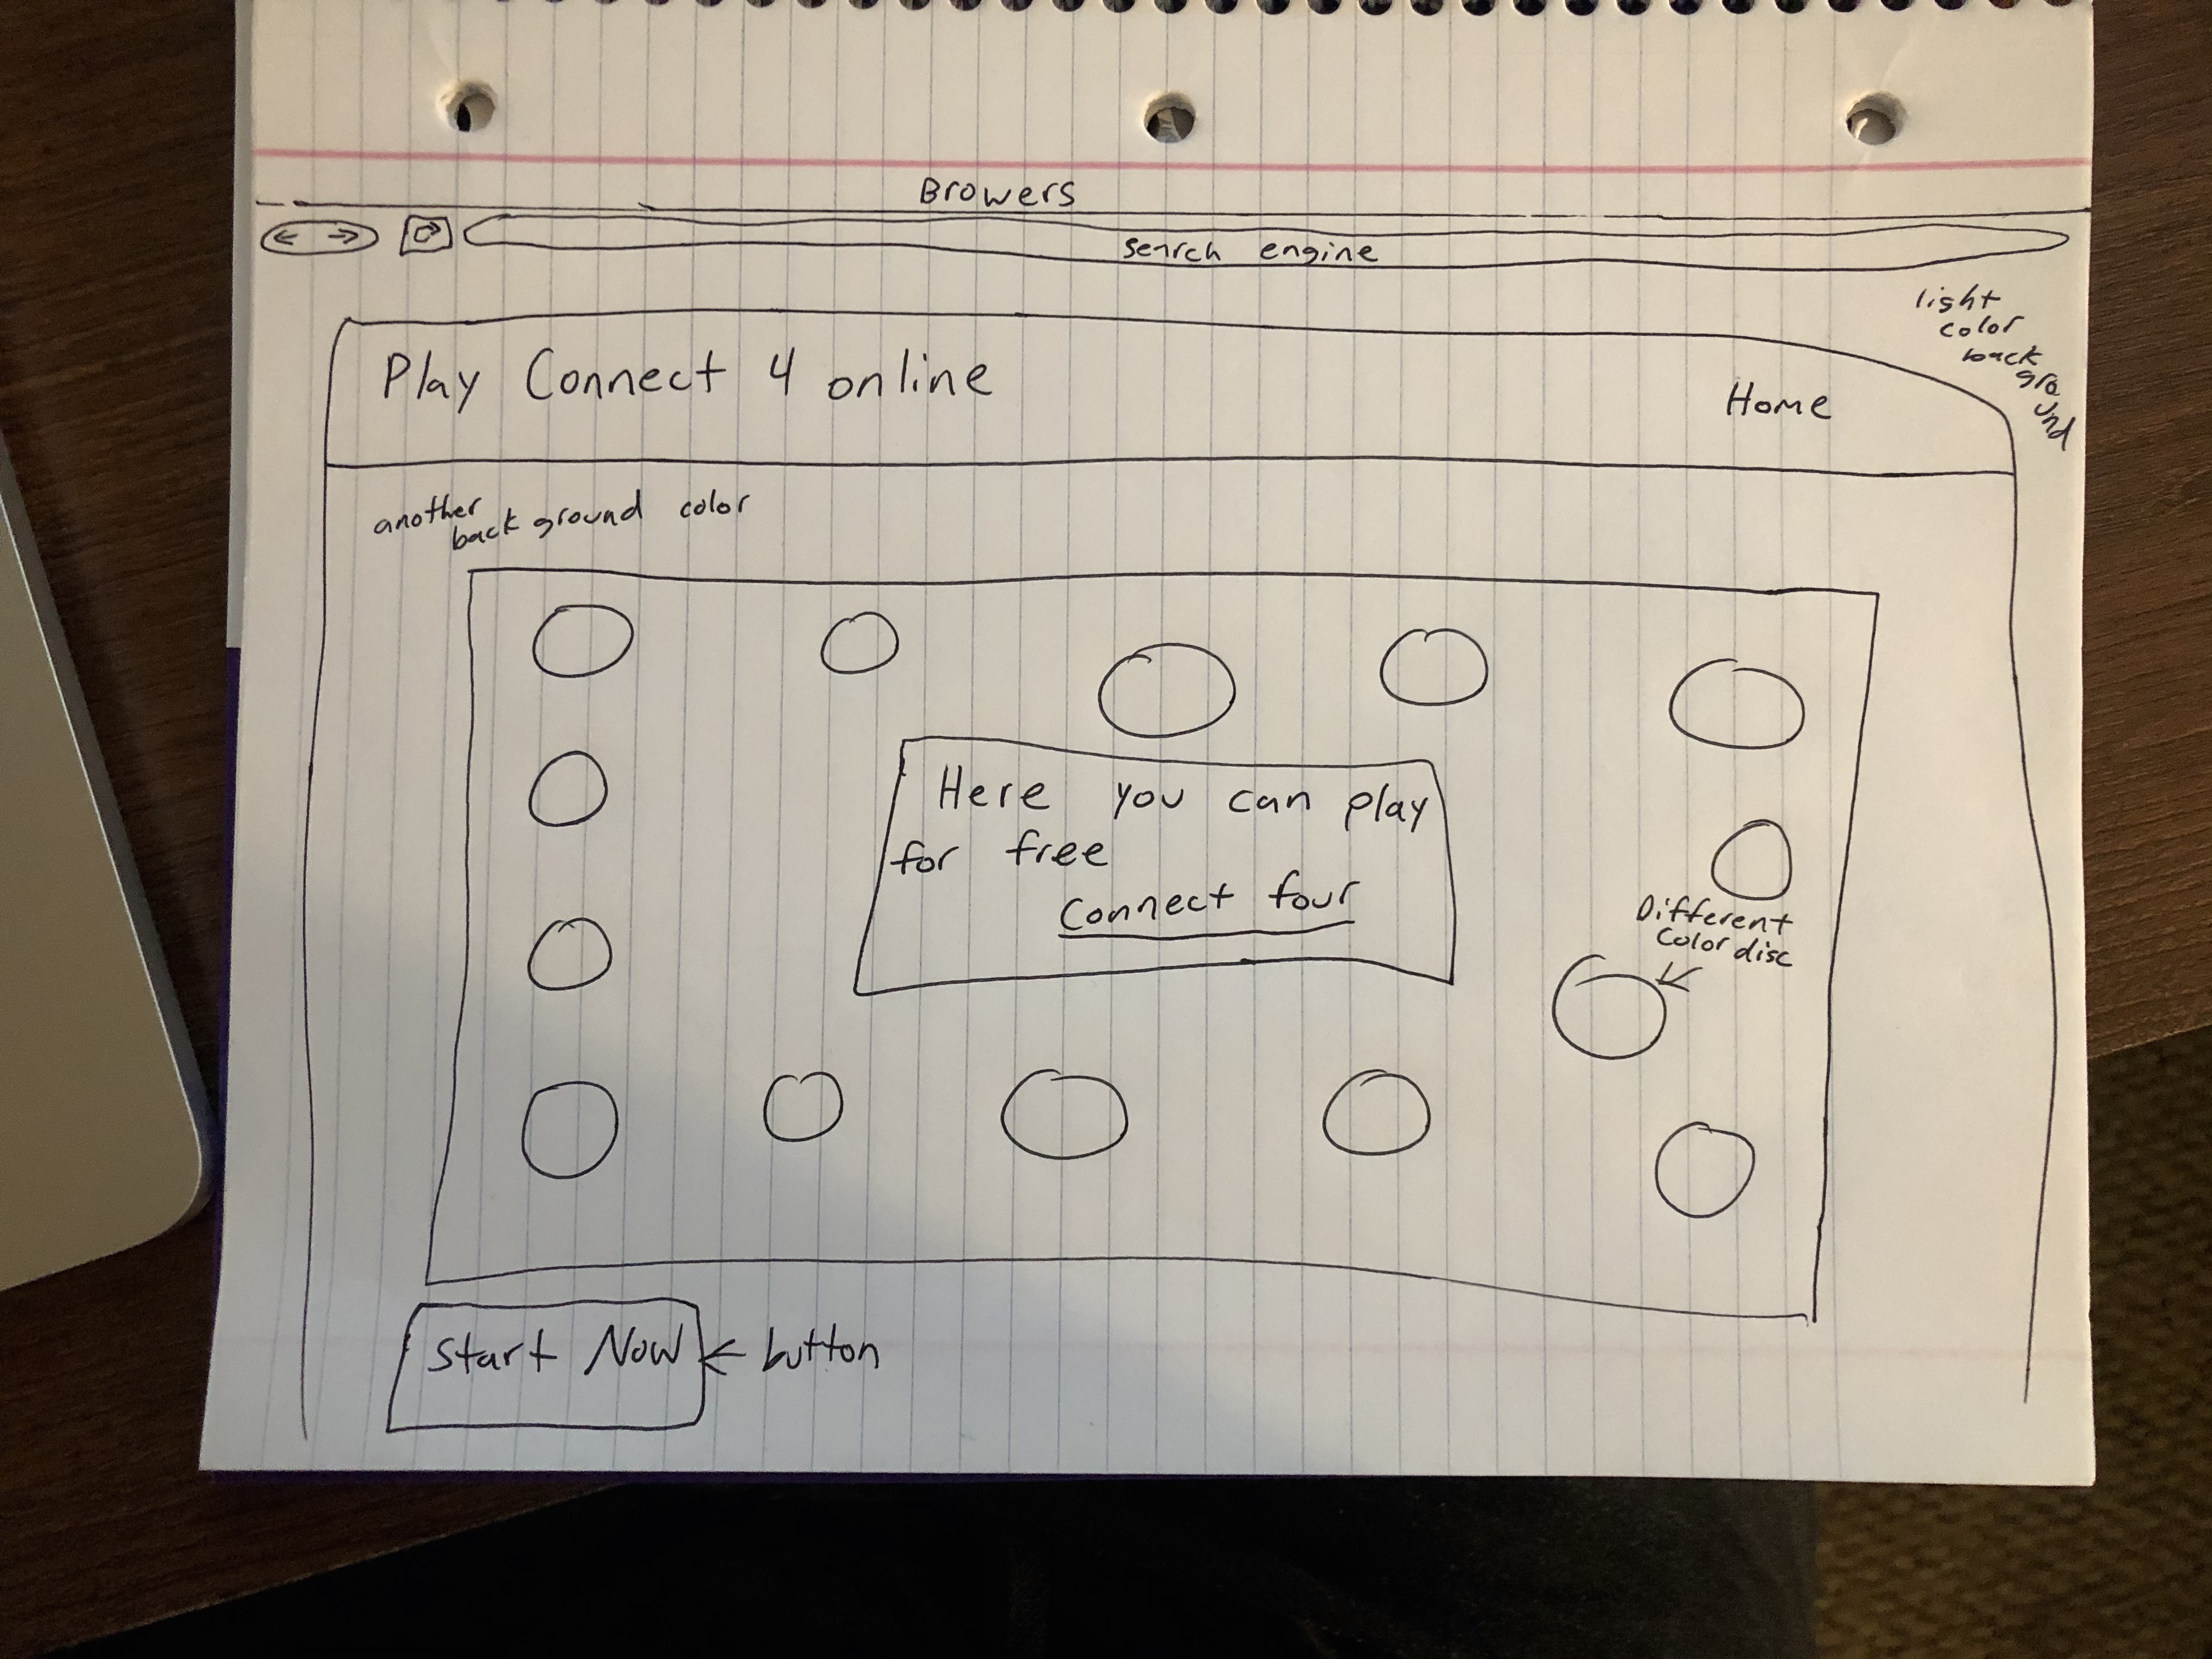 Browers
search engine
light
color
back
gro
und
Play Connect 4 online
Home
another
back ground color
Here you can play
for free
Connect four
Different
Color disc
Start Now
button